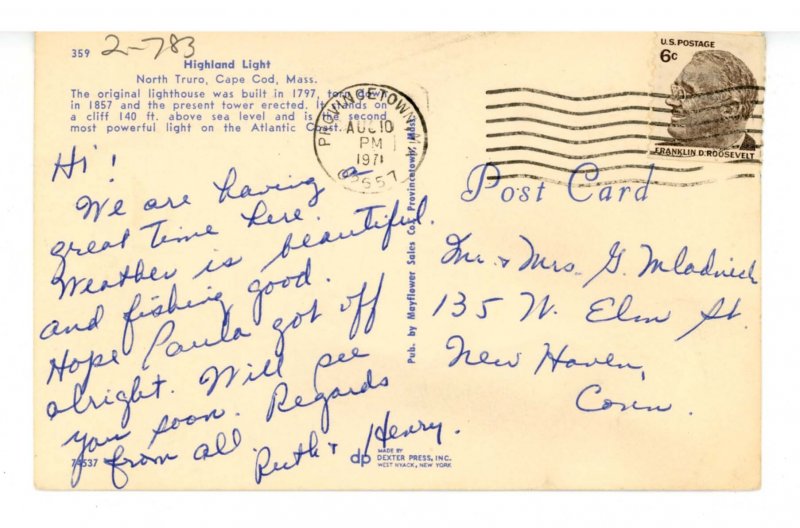 359
2-783
Highland Light
North Truro, Cape Cod, Mass.
The original lighthouse was built in 1797, torn down
in 1857 and the present tower erected. It stands on
a cliff 140 ft. above sea level and is the second
most powerful light on the Atlantic Coast.
Hi!
We are having a
great time here.
Weather is beautiful.
and fishing good.
Hope Paula got off
alright. Will see
you soon. Regards
from all.
Ruth & Henry.
PROVINCETOWN
AUG 10
PM
1971
02657
U.S. POSTAGE
6c
FRANKLIN D. ROOSEVELT
Post Card
Mr. & Mrs. G. Mladnick
135 W. Elm St
New Haven,
Conn.
Pub. by Mayflower Sales Co., Provincetown, Mass.
dp
MADE BY
DEXTER PRESS, INC.
WEST NYACK, NEW YORK